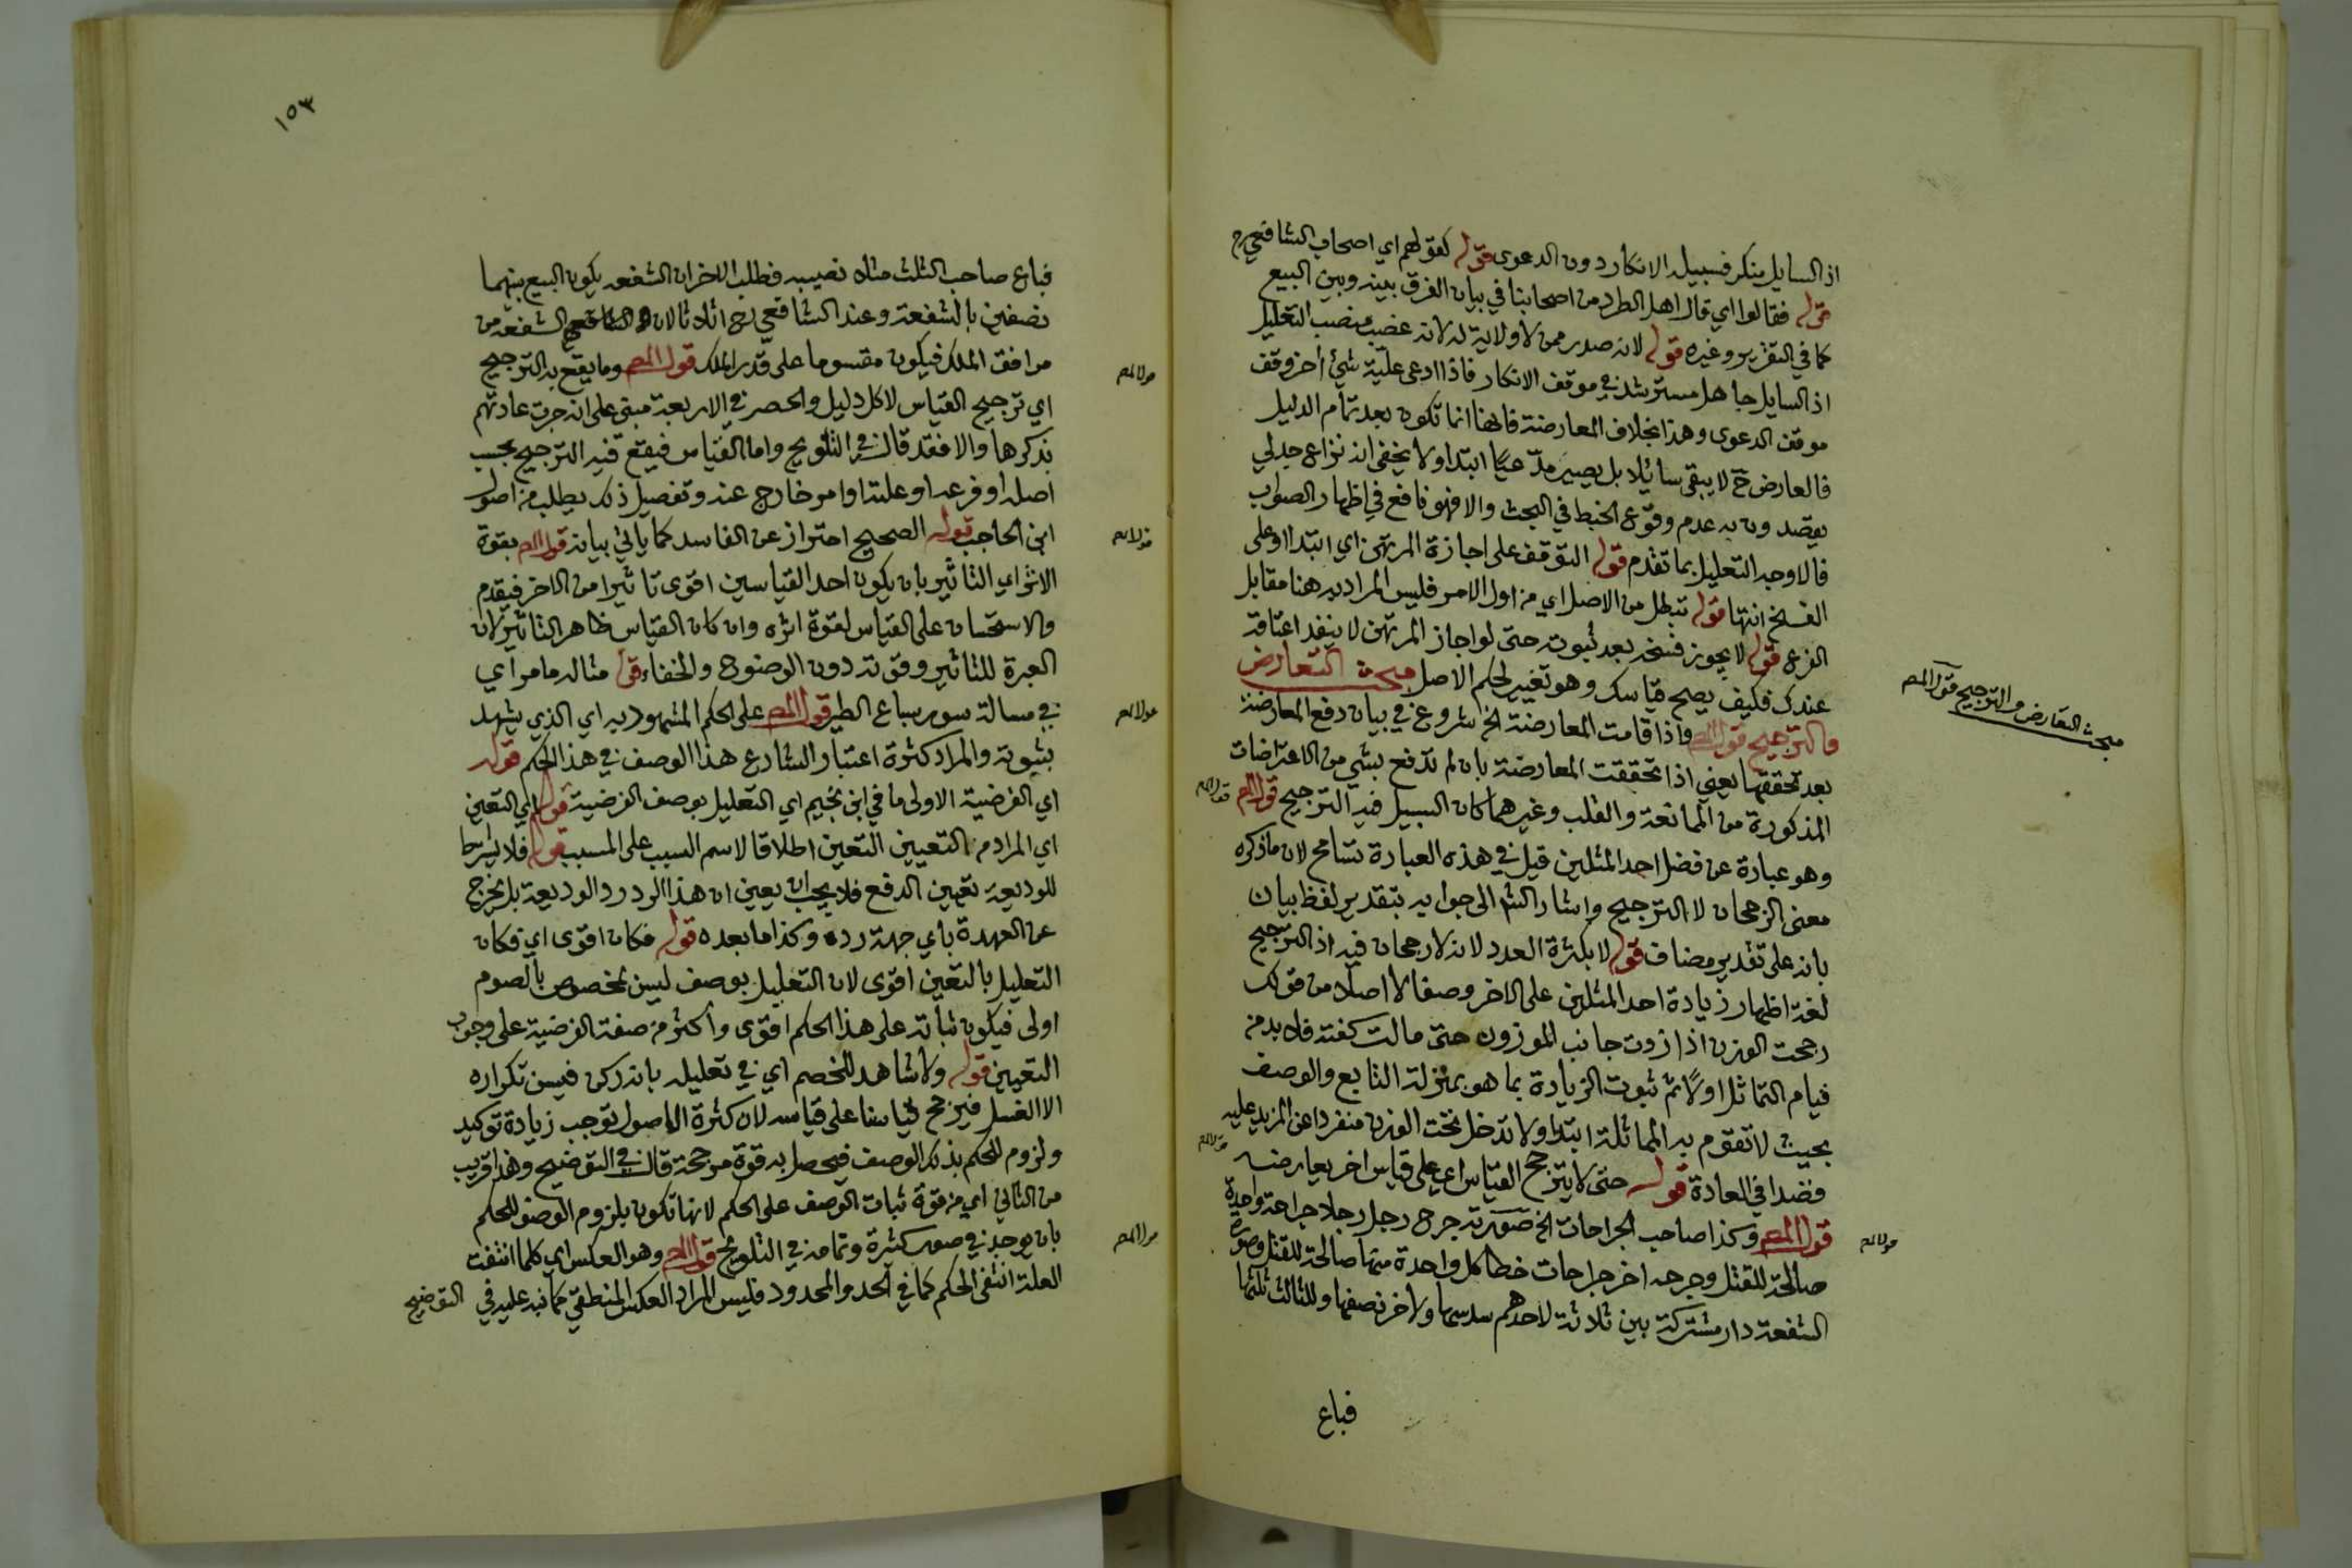 اذ السايل منكر فسبيله الانكار دون الدعوى قوله كقولهم اي اصحاب الشافعي رح
قوله فقالوا اي قال اهل الطرد من اصحابنا في بيان الفرق بينه وبين البيع
كما في التقرير وغيره قوله لانه صدر ممن لا ولاية له لانه غصب منصب التعليل
اذ السايل جاهل مسترشد في موقف الانكار فاذا ادعى علية شيئ اخر وقف
موقف الدعوى وهذا بخلاف المعارضة فانها انما تكون بعد تمام الدليل
فالمعارض ح لا يبقى سايلا بل يصير مدّعيًا ابتداء ولا يخفى انه نزاع جدلي
يقصدون به عدم وقوع الخبط في البحث والا فهو نافع في اظهار الصواب
فالاوجه التعليل بما تقدم قوله التوقف على اجازة المرتهن اي ابتداء وعلى
الفسخ انتها قوله تبطل من الاصل اي من اول الامر فليس المراد به هنا مقابل
الفرع قوله لا يجوز فسخه بعد ثبوته حتى لو اجاز المرتهن لا ينفذ اعتاقه
عندك فكيف يصح قياسك وهو تغيير لحكم الاصل مبحث التعارض
والترجيح قوله المص واذا قامت المعارضة الخ شروع في بيان دفع المعارضة
بعد تحققها يعني اذا تحققت المعارضة بان لم تدفع بشي من الاعتراضات
المذكورة من الممانعة والقلب وغيرهما كان السبيل فيه الترجيح قوله المص
وهو عبارة عن فضل احد المثلين قيل في هذه العبارة تسامح لان ما ذكره
معنى الرجحان لا الترجيح واشار الش الى جوابه بتقدير لفظ بيان
بانه على تقدير مضاف قوله لا بكثرة العدد لانه لا رجحان فيه اذ الترجيح
لغة اظهار زيادة احد المثلين على الاخر وصفا لا اصلا من قولك
رجحت الوزن اذا زدت جانب الموزون حتى مالت كفته فلا بد من
قيام التماثل اولًا ثم ثبوت الزيادة بما هو بمنزلة التابع والوصف
بحيث لا تقوم به المماثلة ابتداء ولا تدخل تحت الوزن منفردا عن المزيد عليه
قصدا في العادة قوله حتى لا يترجح القياس اي على قياس اخر يعارضه
قوله المص وكذا صاحب الجراحات الخ صورته جرح رجل رجلا جراحة واحدة
صالحة للقتل وجرحه اخر جراحات خطا كل واحدة منها صالحة للقتل وصورة
الشفعة دار مشتركة بين ثلاثة لاحدهم سدسها ولاخر نصفها وللثالث ثلثها
فباع
مبحث التعارض والترجيح قوله المص
قوله المص
قوله المص
قوله المص
١٥٣
فباع صاحب الثلث مثلا نصيبه فطلب الاخران الشفعه يكون البيع بينهما
نصفين بالشفعة وعند الشافعي رح اثلاثا لان الشفعه من
مرافق الملك فيكون مقسوما على قدر الملك قوله المص وما يقع به الترجيح
اي ترجيح القياس لا كل دليل والحصر في الاربعة مبنى على انه جرت عادتهم
بذكرها والا فقد قال في التلويح واما القياس فيقع فيه الترجيح بحسب
اصله او فرعه او علته او امر خارج عنه وتفصيل ذلك يطلب من اصول
ابن الحاجب قوله الصحيح احتراز عن الفاسد كما ياتي بيانه قوله المص بقوة
الاثر اي التاثير بان يكون احد القياسين اقوى تاثيرا من الاخر فيقدم
والاستحسان على القياس لقوة اثره وان كان القياس ظاهر التاثير لان
العبرة للتاثير وقوته دون الوضوح والخفاء قوله مثاله ما مر اي
في مسالة سور سباع الطير قوله المص على الحكم المشهود به اي الذي يشهد
بثبوته والمراد كثرة اعتبار الشارع هذا الوصف في هذا الحكم قوله
اي الفرضية الاولى ما في ابن نجيم اي التعليل بوصف الفرضية قوله اي التعين
اي المراد من التعيين التعين اطلاقا لاسم السبب على المسبب قوله فلا يشرط
للوديعة تعيين الدفع فلا يجب ان يعين ان هذا الرد رد الوديعة بل يخرج
عن العهدة باي جهة رده وكذا ما بعده قوله فكان اقوى اي فكان
التعليل بالتعين اقوى لان التعليل بوصف ليس بمخصوص بالصوم
اولى فيكون ثباته على هذا الحكم اقوى واكثر من صفة الفرضية على وجوب
التعيين قوله ولا شاهد للخصم اي في تعليله بانه ركن فيسن تكراره
الا الغسل فيرجح قياسنا على قياسه لان كثرة الاصول توجب زيادة توكيد
ولزوم للحكم بذلك الوصف فيحصل به قوة مرجحة قال في التوضيح وهذا قريب
من الثاني اي من قوة ثبات الوصف على الحكم لانها تكون بلزوم الوصف للحكم
بان يوجد في صور كثيرة وتمامه في التلويح قوله المص وهو العكس اي كلما انتفت
العلة انتفى الحكم كما في الحد والمحدود فليس المراد العكس المنطقي كما نبه عليه في التوضيح
قوله المص
قوله المص
قوله المص
قوله المص